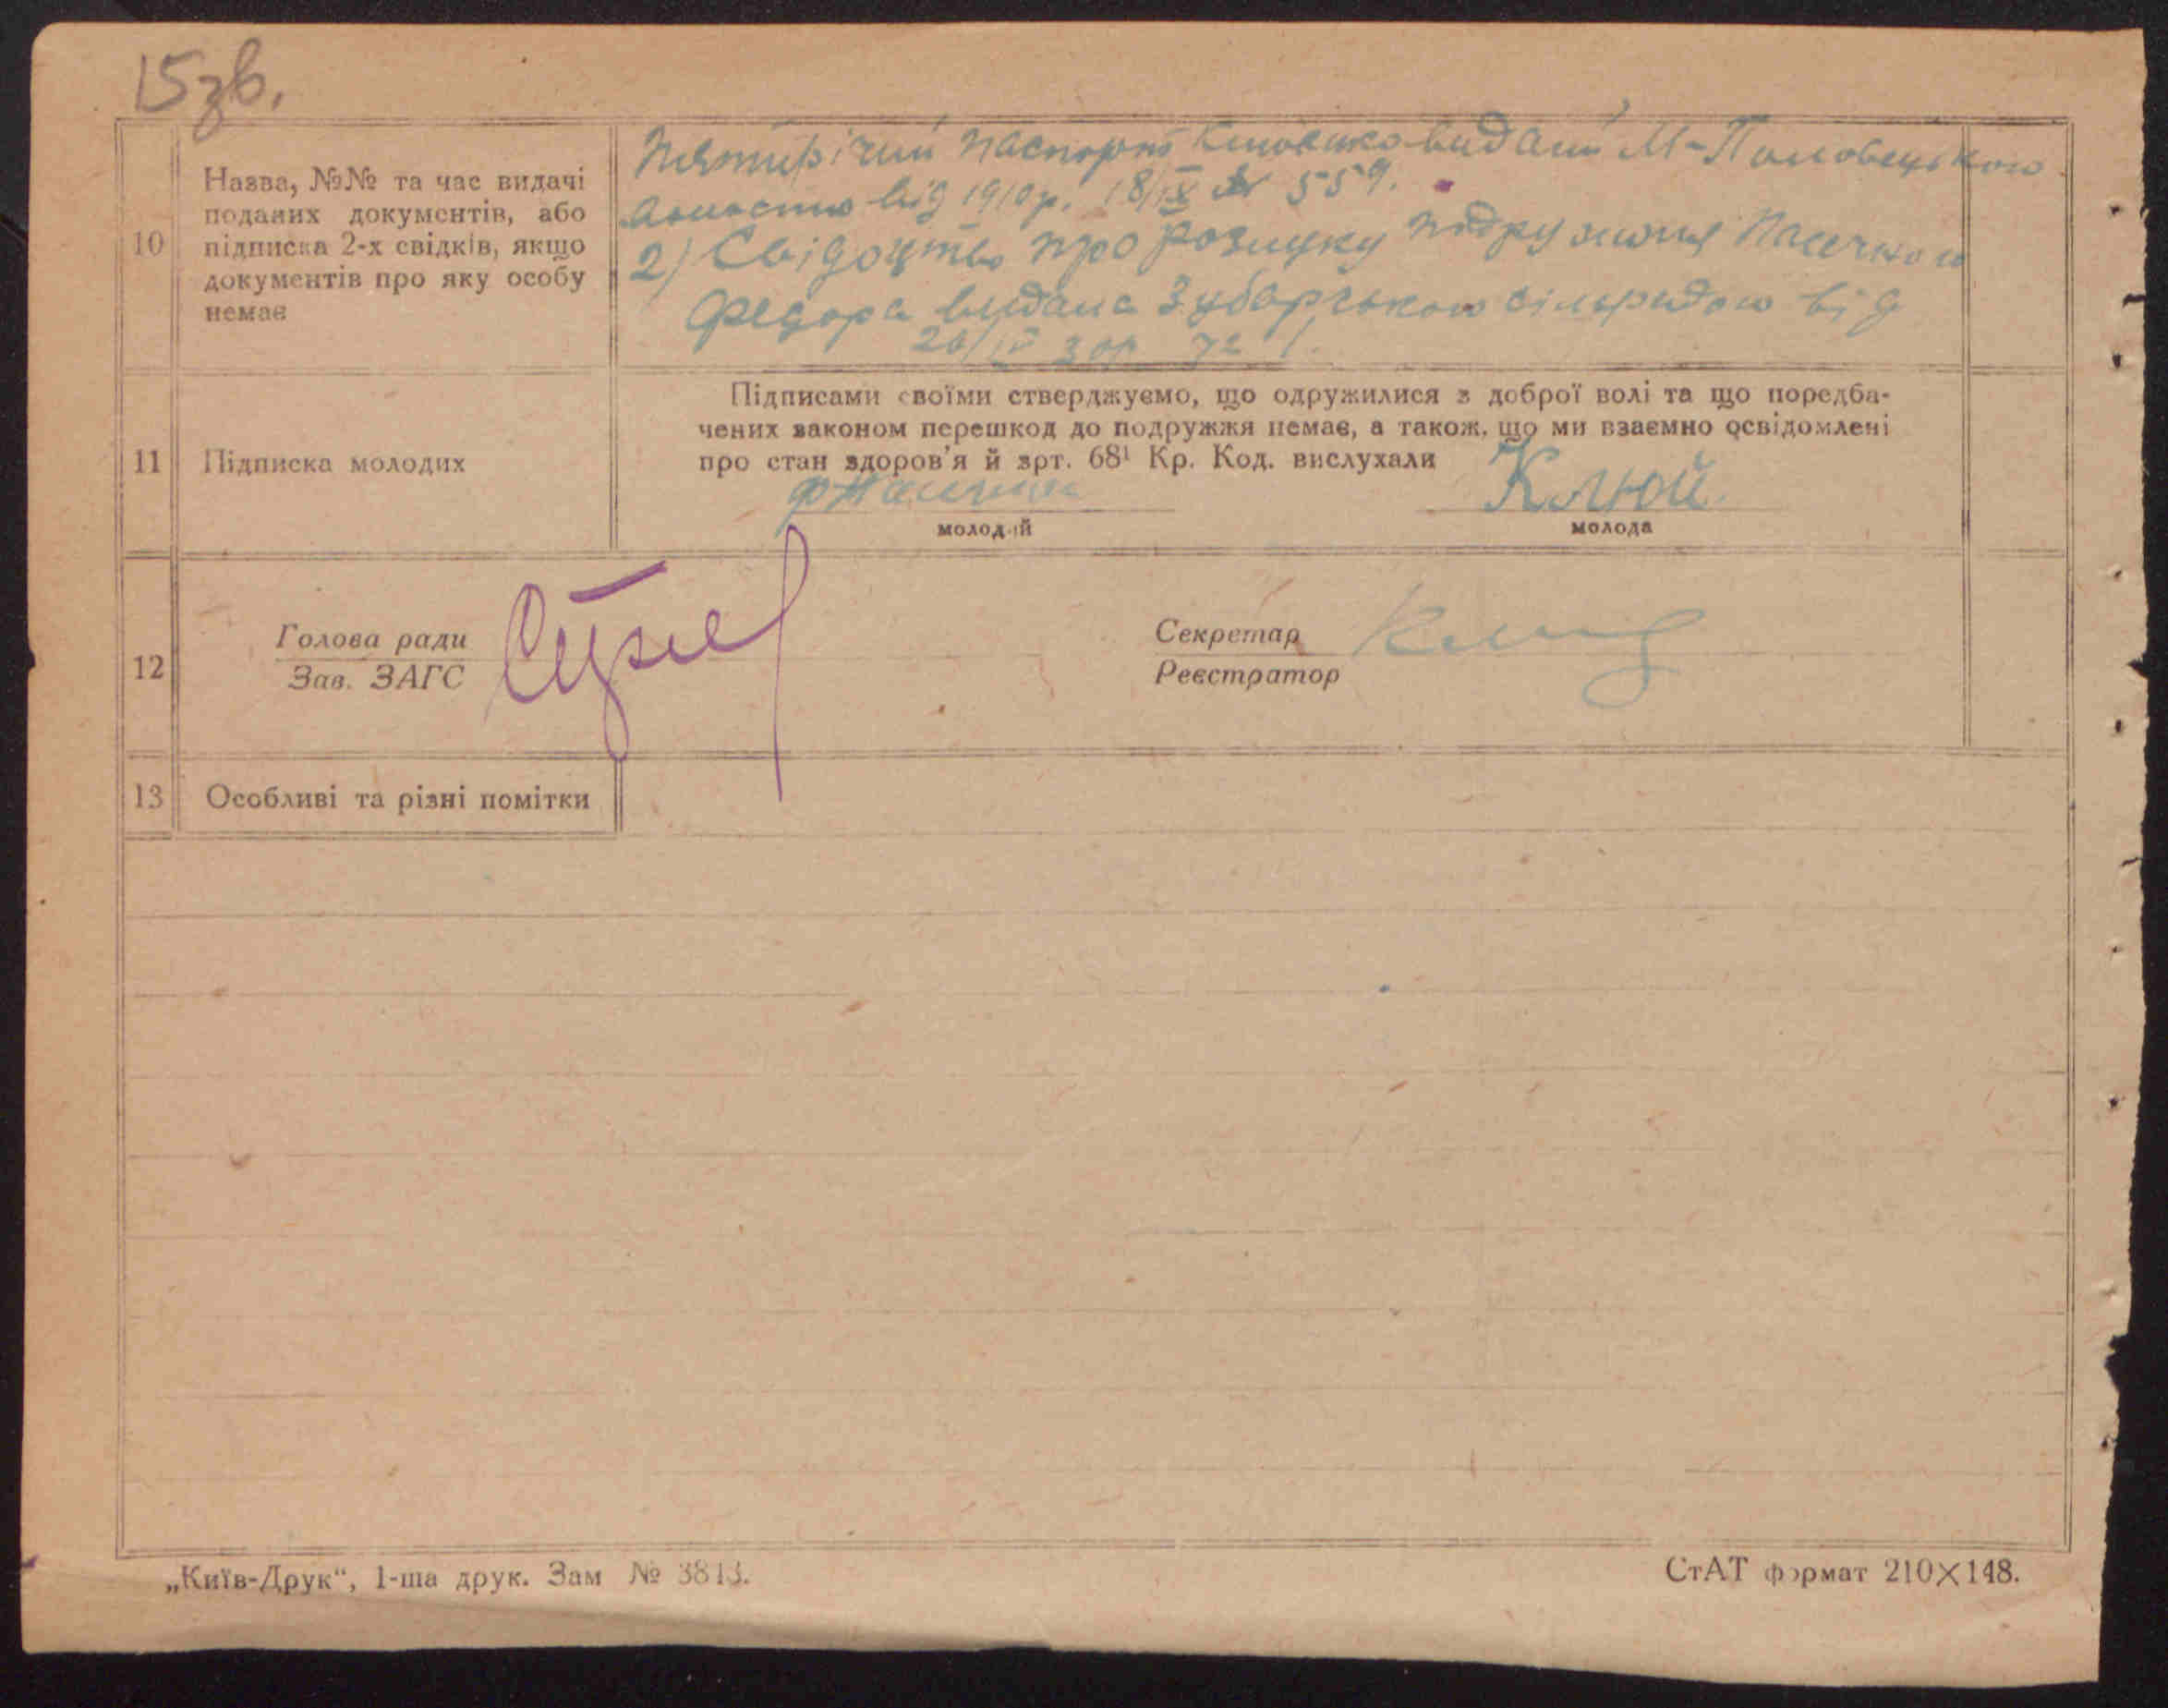 15зв.
10
Назва, №№ та час видачі
поданих документів, або
підписка 2-х свідків, якщо
документів про яку особу
немає
Пятирічний паспорт видани М-Половецькою
волостю від 1910 р. 18/IX № 559.
2) Свідоцтво про розлуку подружжя
Федора видана Зубарською сільрадою від
26/IV 30р № 1
11
Підписка молодих
Підписами своїми стверджуємо, що одружилися з доброї волі та що передба-
чених законом перешкод до подружжя немає, а також, що ми взаємно освідомлені
про стан здоров'я й арт. 68¹ Кр. Код. вислухали
Клюй
молодий
молода
12
Голова ради
Зав. ЗАГС
Секретар
Реєстратор
13
Особливі та різні помітки
„Київ-Друк“, 1-ша друк. Зам № 3813.
СтАТ формат 210×148.